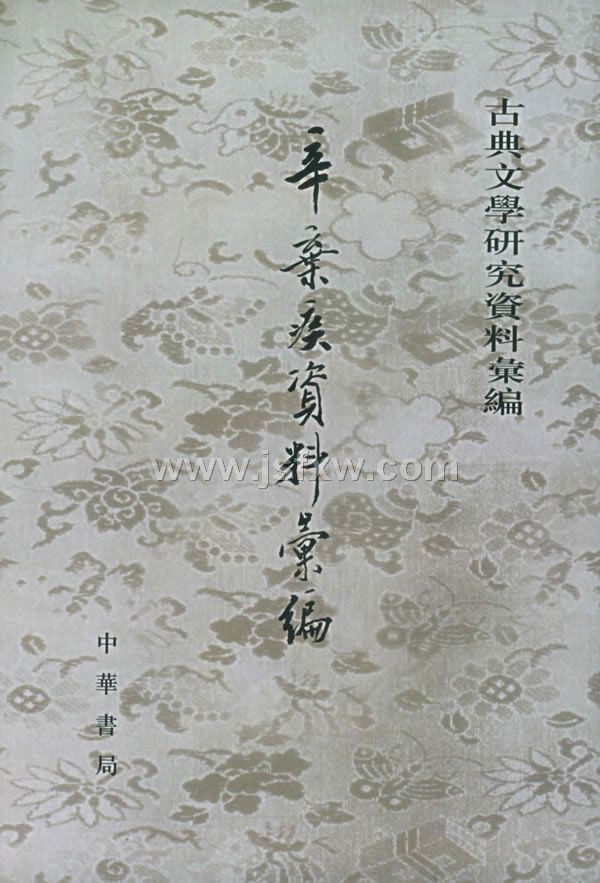 古典文學硏究資料彙編
辛棄疾資料彙編
中華書局
www.jsfxw.com